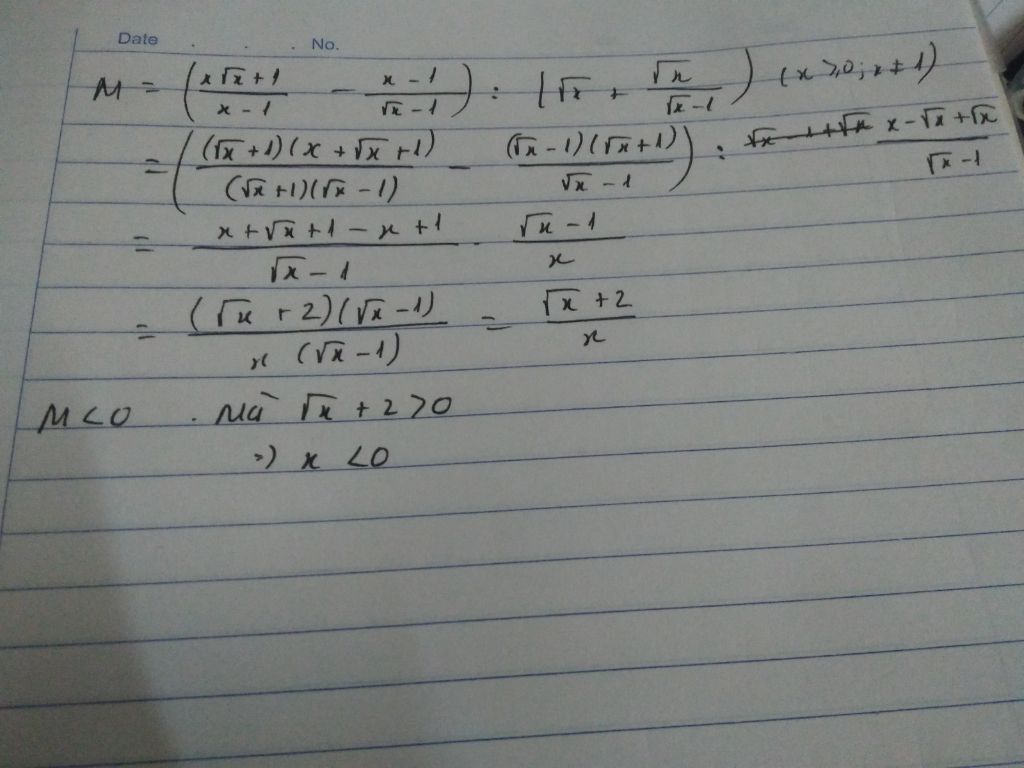 Date . . . No.
M = (x√x + 1 / x - 1 - x - 1 / √x - 1) : (√x + √x / √x - 1) (x ≥ 0; x ≠ 1)
= ((√x + 1)(x + √x + 1) / (√x + 1)(√x - 1) - (√x - 1)(√x + 1) / √x - 1) : x - √x + √x / √x - 1
= x + √x + 1 - x + 1 / √x - 1 . √x - 1 / x
= (√x + 2)(√x - 1) / x (√x - 1) = √x + 2 / x
M < 0 . Mà √x + 2 > 0
=) x < 0